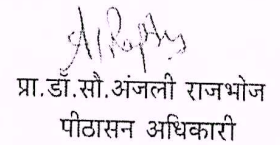 प्रा.डॉ.सौ.अंजली राजभोज
पीठासन अधिकारी